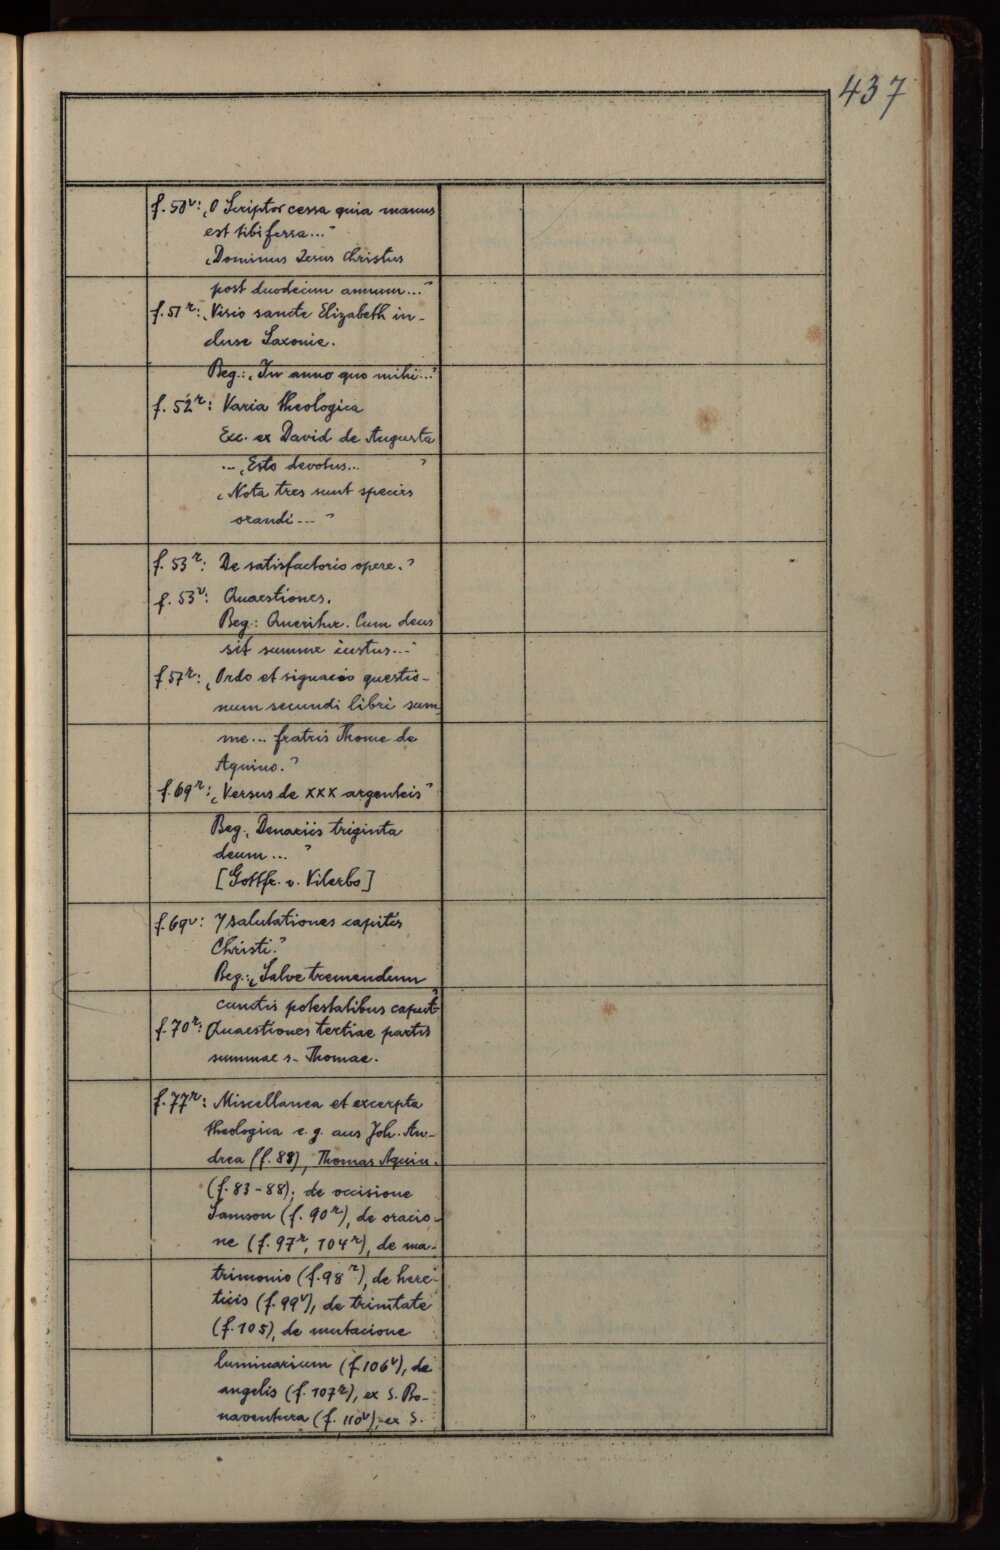 437
f. 50v: „O Scriptor cessa quia manus
est tibi fessa..."
„Dominus Jesus Christus
post duodecim annum..."
f. 51r: „Visio sancte Elizabeth in-
cluse Saxonie.
Beg.: „In anno quo mihi..."
f. 52r: Varia theologica
Exc. ex David de Augusta
... „Esto devotus... "
„Nota tres sunt species
orandi... "
f. 53r: De satisfactorio opere."
f. 53v: Quaestiones.
Beg.: Queritur. Cum deus
sit summe iustus..."
f 57r: „Ordo et signacio questio-
num secundi libri sum-
me... fratris Thome de
Aquino."
f. 69r: „Versus de XXX argenteis"
Beg. „Denariis triginta
deum... "
[Gottfr. v. Viterbo]
f. 69v: 7 salutationes capitis
Christi."
Beg.: „Salve tremendum
cunctis potestatibus caput"
f. 70r: Quaestiones tertiae partis
summae s. Thomae.
f. 77r: Miscellanea et excerpta
theologica e. g. aus Joh. An-
drea (f. 88), Thomas Aquin.
(f. 83-88); de occisione
Samson (f. 90r), de oracio-
ne (f. 97r, 104r), de ma-
trimonio (f. 98r), de here-
ticis (f. 99v), de trinitate
(f. 105), de mutacione
luminarium (f. 106v), de
angelis (f. 107r), ex S. Bo-
naventura (f. 110v), ex S.